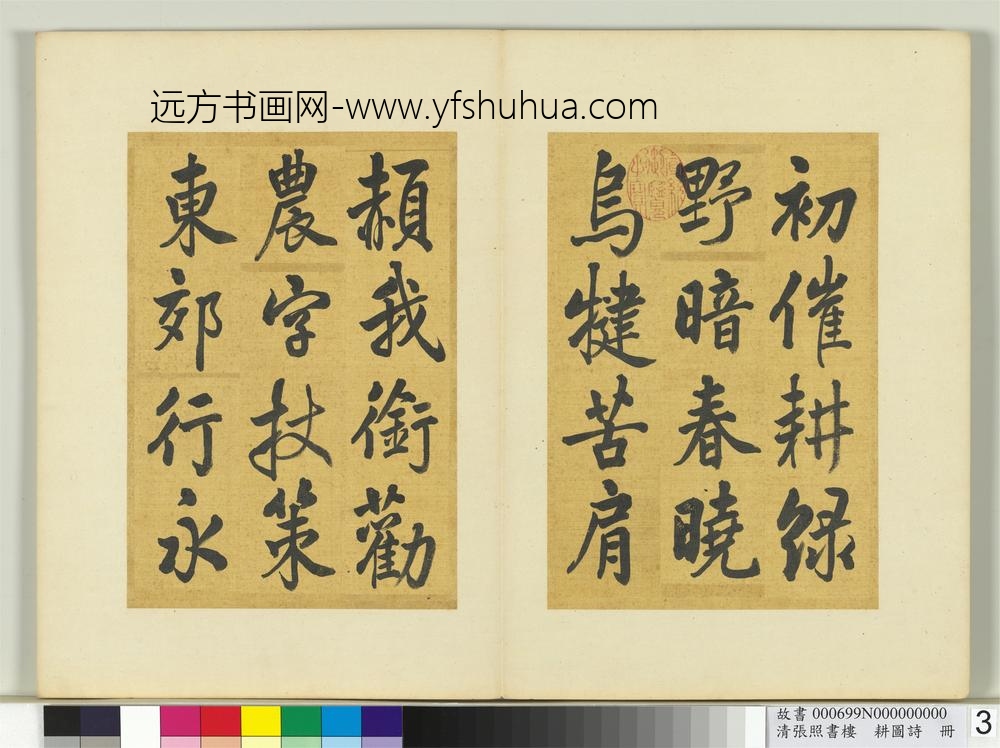 远方书画网-www.yfshuhua.com
初催耕緑
野暗春曉
烏犍苦肩
頳我銜勸
農字杖策
東郊行永
故書 000699N000000000
清張照書樓 耕圖詩 冊
3